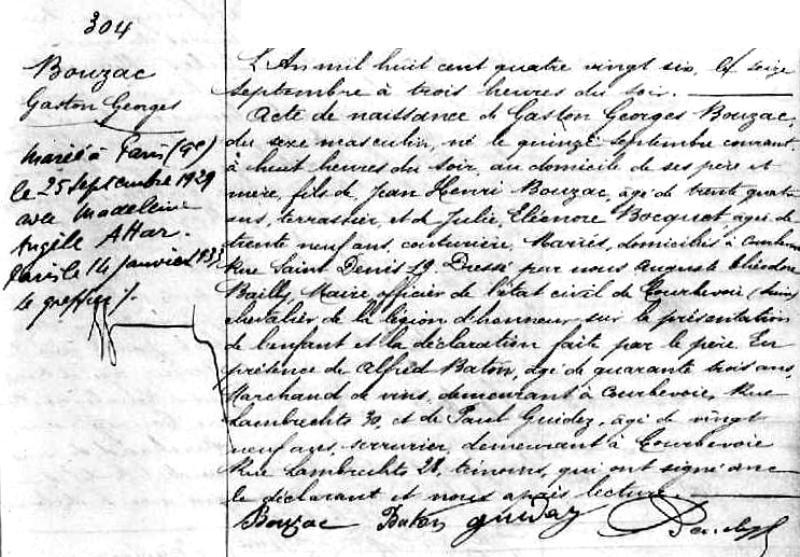 304
Bouzac
Gaston Georges
Marié à Paris (9e)
le 25 septembre 1929
avec Madeleine
Angèle Attar.
Paris le 14 janvier 1933
Le greffier /.
L'An mil huit cent quatre vingt six, le seize
septembre à trois heures du soir.
Acte de naissance de Gaston Georges Bouzac,
du sexe masculin, né le quinze septembre courant
à huit heures du soir, au domicile de ses père et
mère, fils de Jean Henri Bouzac, âgé de trente quatre
ans, terrassier, et de Julie, Elienore Bocquet, âgée de
trente neuf ans, couturière, Mariés, domiciliés à
Rue Saint Denis 29. Dressé par nous Auguste Théodore
Bailly, Maire officier de l'état civil de Courbevoie (Seine)
chevalier de la légion d'honneur sur la présentation
de l'enfant et la déclaration faite par le père. En
présence de Alfred Baton, âgé de quarante trois ans,
Marchand de vins, demeurant à Courbevoie, Rue
Lambrechts 30, et de Paul Guidez, âgé de vingt
neuf ans, serrurier, demeurant à Courbevoie
Rue Lambrechts 28, témoins, qui ont signé avec
le déclarant et nous après lecture.
Bouzac Baton guidez